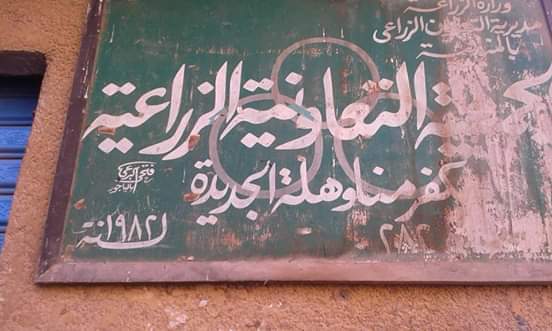 وزارة الزراعة
مديرية التعاون الزراعى
بالمنوفية
الجمعية التعاونية الزراعية
كفر مناوهلة الجديدة
فتحى
سنة ١٩٨٢